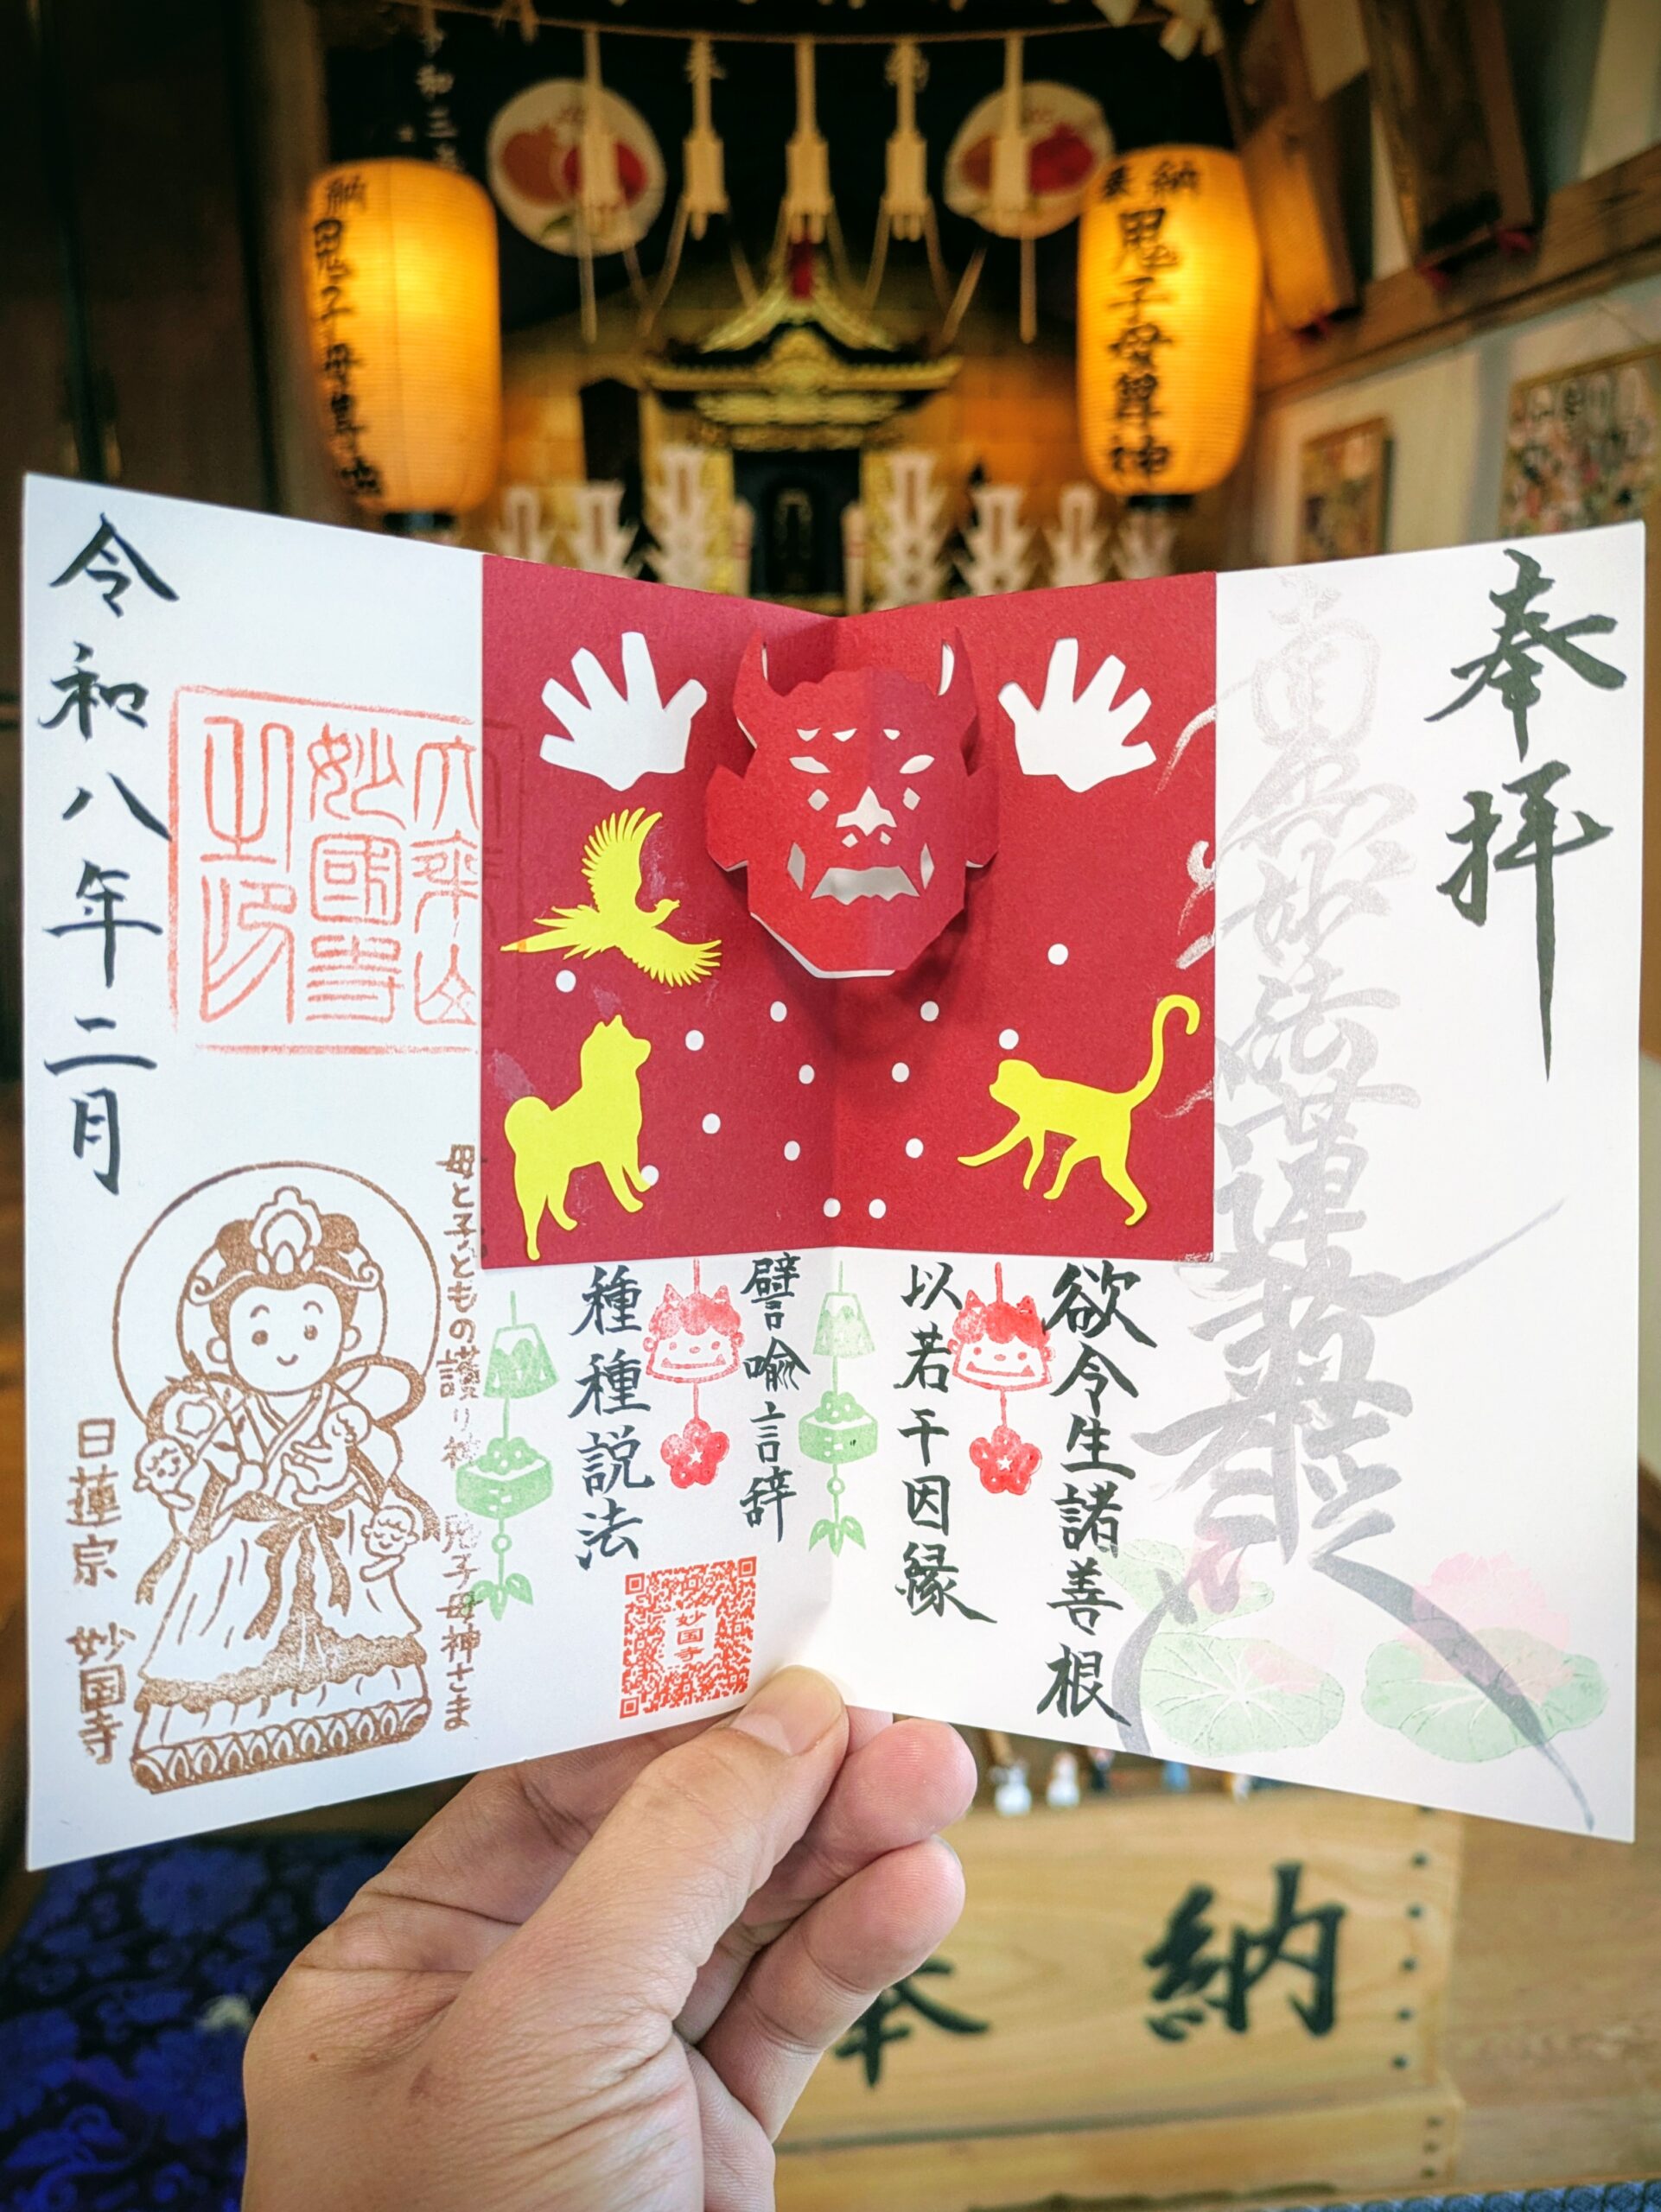 奉納
鬼子母尊神
納
鬼子母尊神
奉拝
南無妙法蓮華経
欲令生諸善根
以若干因縁
譬喩言辞
種種説法
妙国寺
母と子どもの護り神 鬼子母神さま
妙國寺
之印
令和八年二月
日蓮宗 妙国寺
奉納